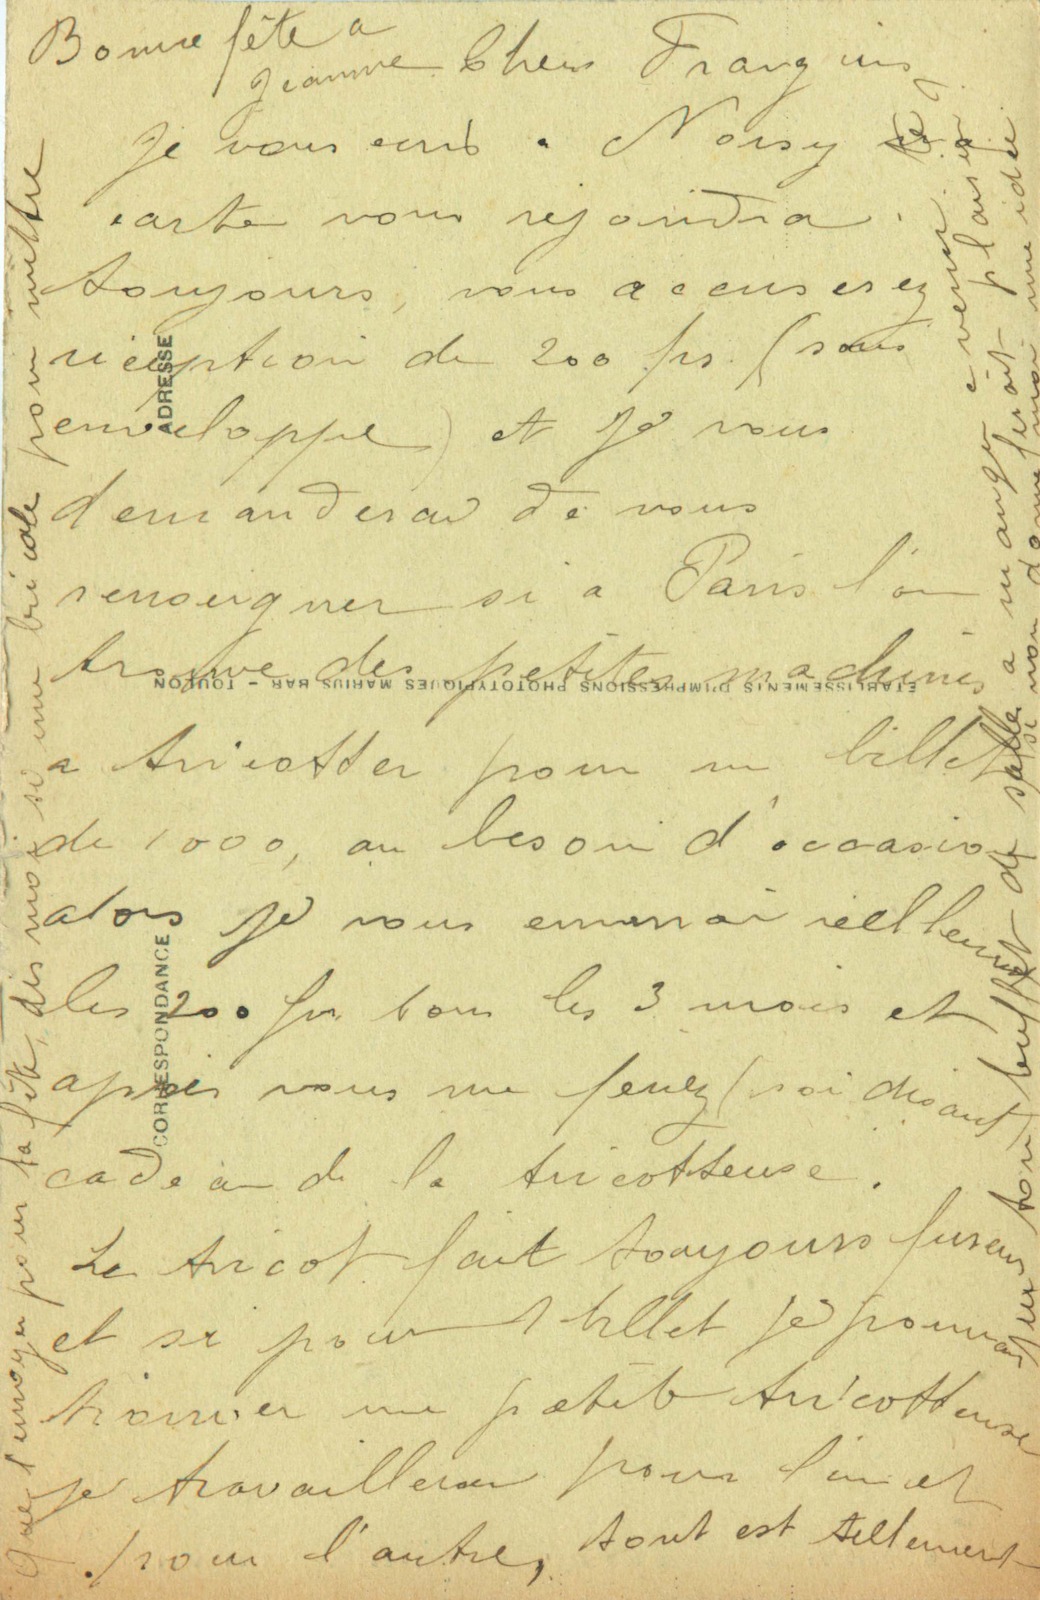 Bonne fête a
Jeanne
Chers Françins
je vous ecris a Noisy
carte vous rejoindra
toujours, vous accuserez
réception de 200 frs. (sous
enveloppe) et je vous
demanderai de vous
renseigner si a Paris l'on
trouve des petites machines
a tricotter pour un billet
de 1000, au besoin d'occasion
alors je vous enverrai réellement
les 200 fr. tous les 3 mois et
après vous me ferez (soi disant
cadeau de la tricotteuse.
Le tricot fait toujours fureur
et si pour 1 billet je pouvais
trouver une petite tricotteuse
je travaillerai pour l'un et
pour l'autre, tout est tellement
que l'envoyer pour ta fête, dis moi si une bricole pour mettre
sur ton buffet de salle a manger te ferait plaisir
si non donne moi une idée
ADRESSE
CORRESPONDANCE
ETABLISSEMENTS D'IMPRESSIONS PHOTOTYPIQUES MARIUS BAR - TOULON